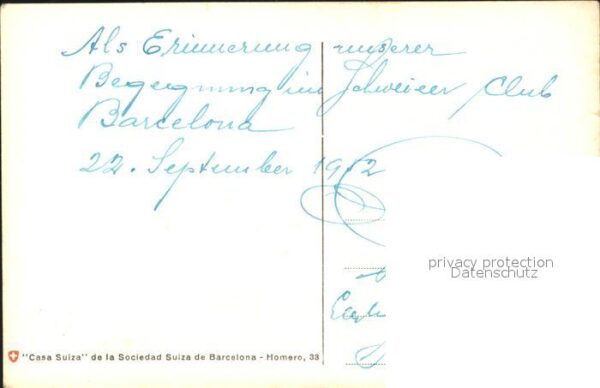 Als Erinnerung unserer
Begegnung im Schweizer Club
Barcelona
22. September
privacy protection
Datenschutz
"Casa Suiza" de la Sociedad Suiza de Barcelona - Homero, 33